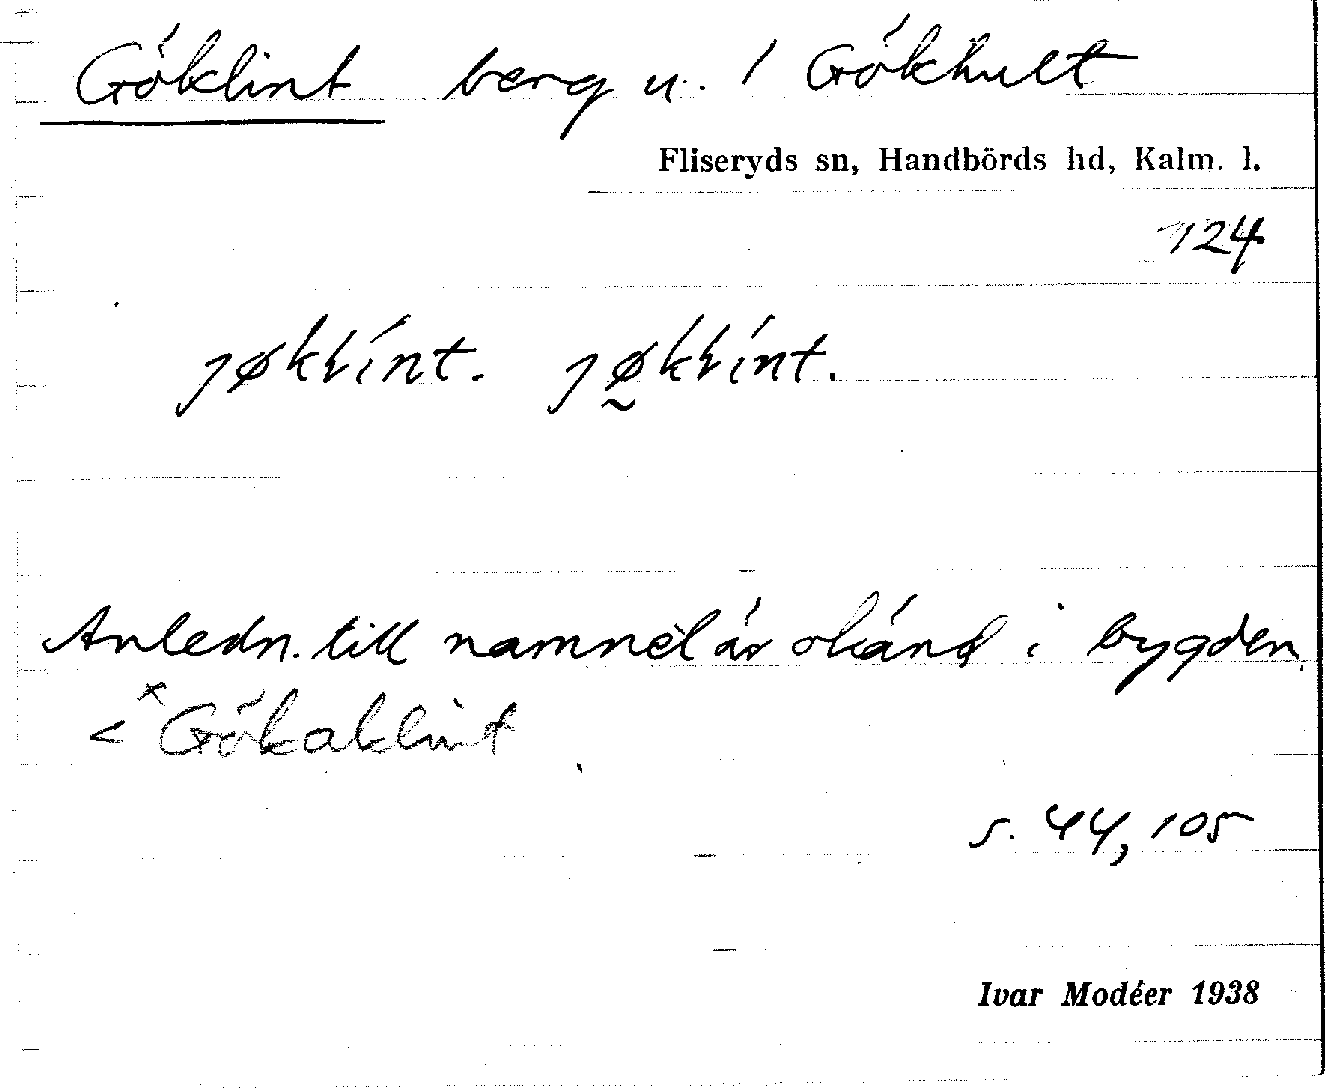 Göklint berg u. / Gökhult
Fliseryds sn, Handbörds hd, Kalm. l.
124
jøklint. jø̰klint.
Anledn. till namnet är okänd i bygden.
< *Gökaklint
s. 44, 105
Ivar Modéer 1938